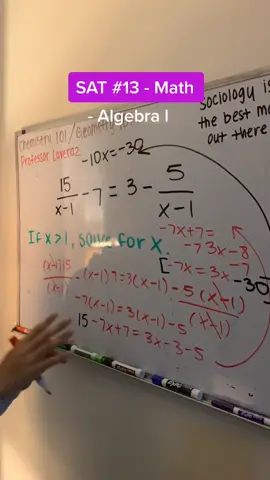 SAT #13 - Math
- Algebra I
Chemistry 101/Geometry
Professor Loveraz
Sociology is
the best ma
out there
-10x=-30
15/(x-1) - 7 = 3 - 5/(x-1)
If x>1, solve for x.
-7x+7=
-7 3x-8
[-7x=3x-7
-30
(x-1)15/(x-1) - (x-1)7=3(x-1)-5(x-1)/(x-1)
-7(x-1)=3(x-1)-5
15-7x+7=3x-3-5
EXPO